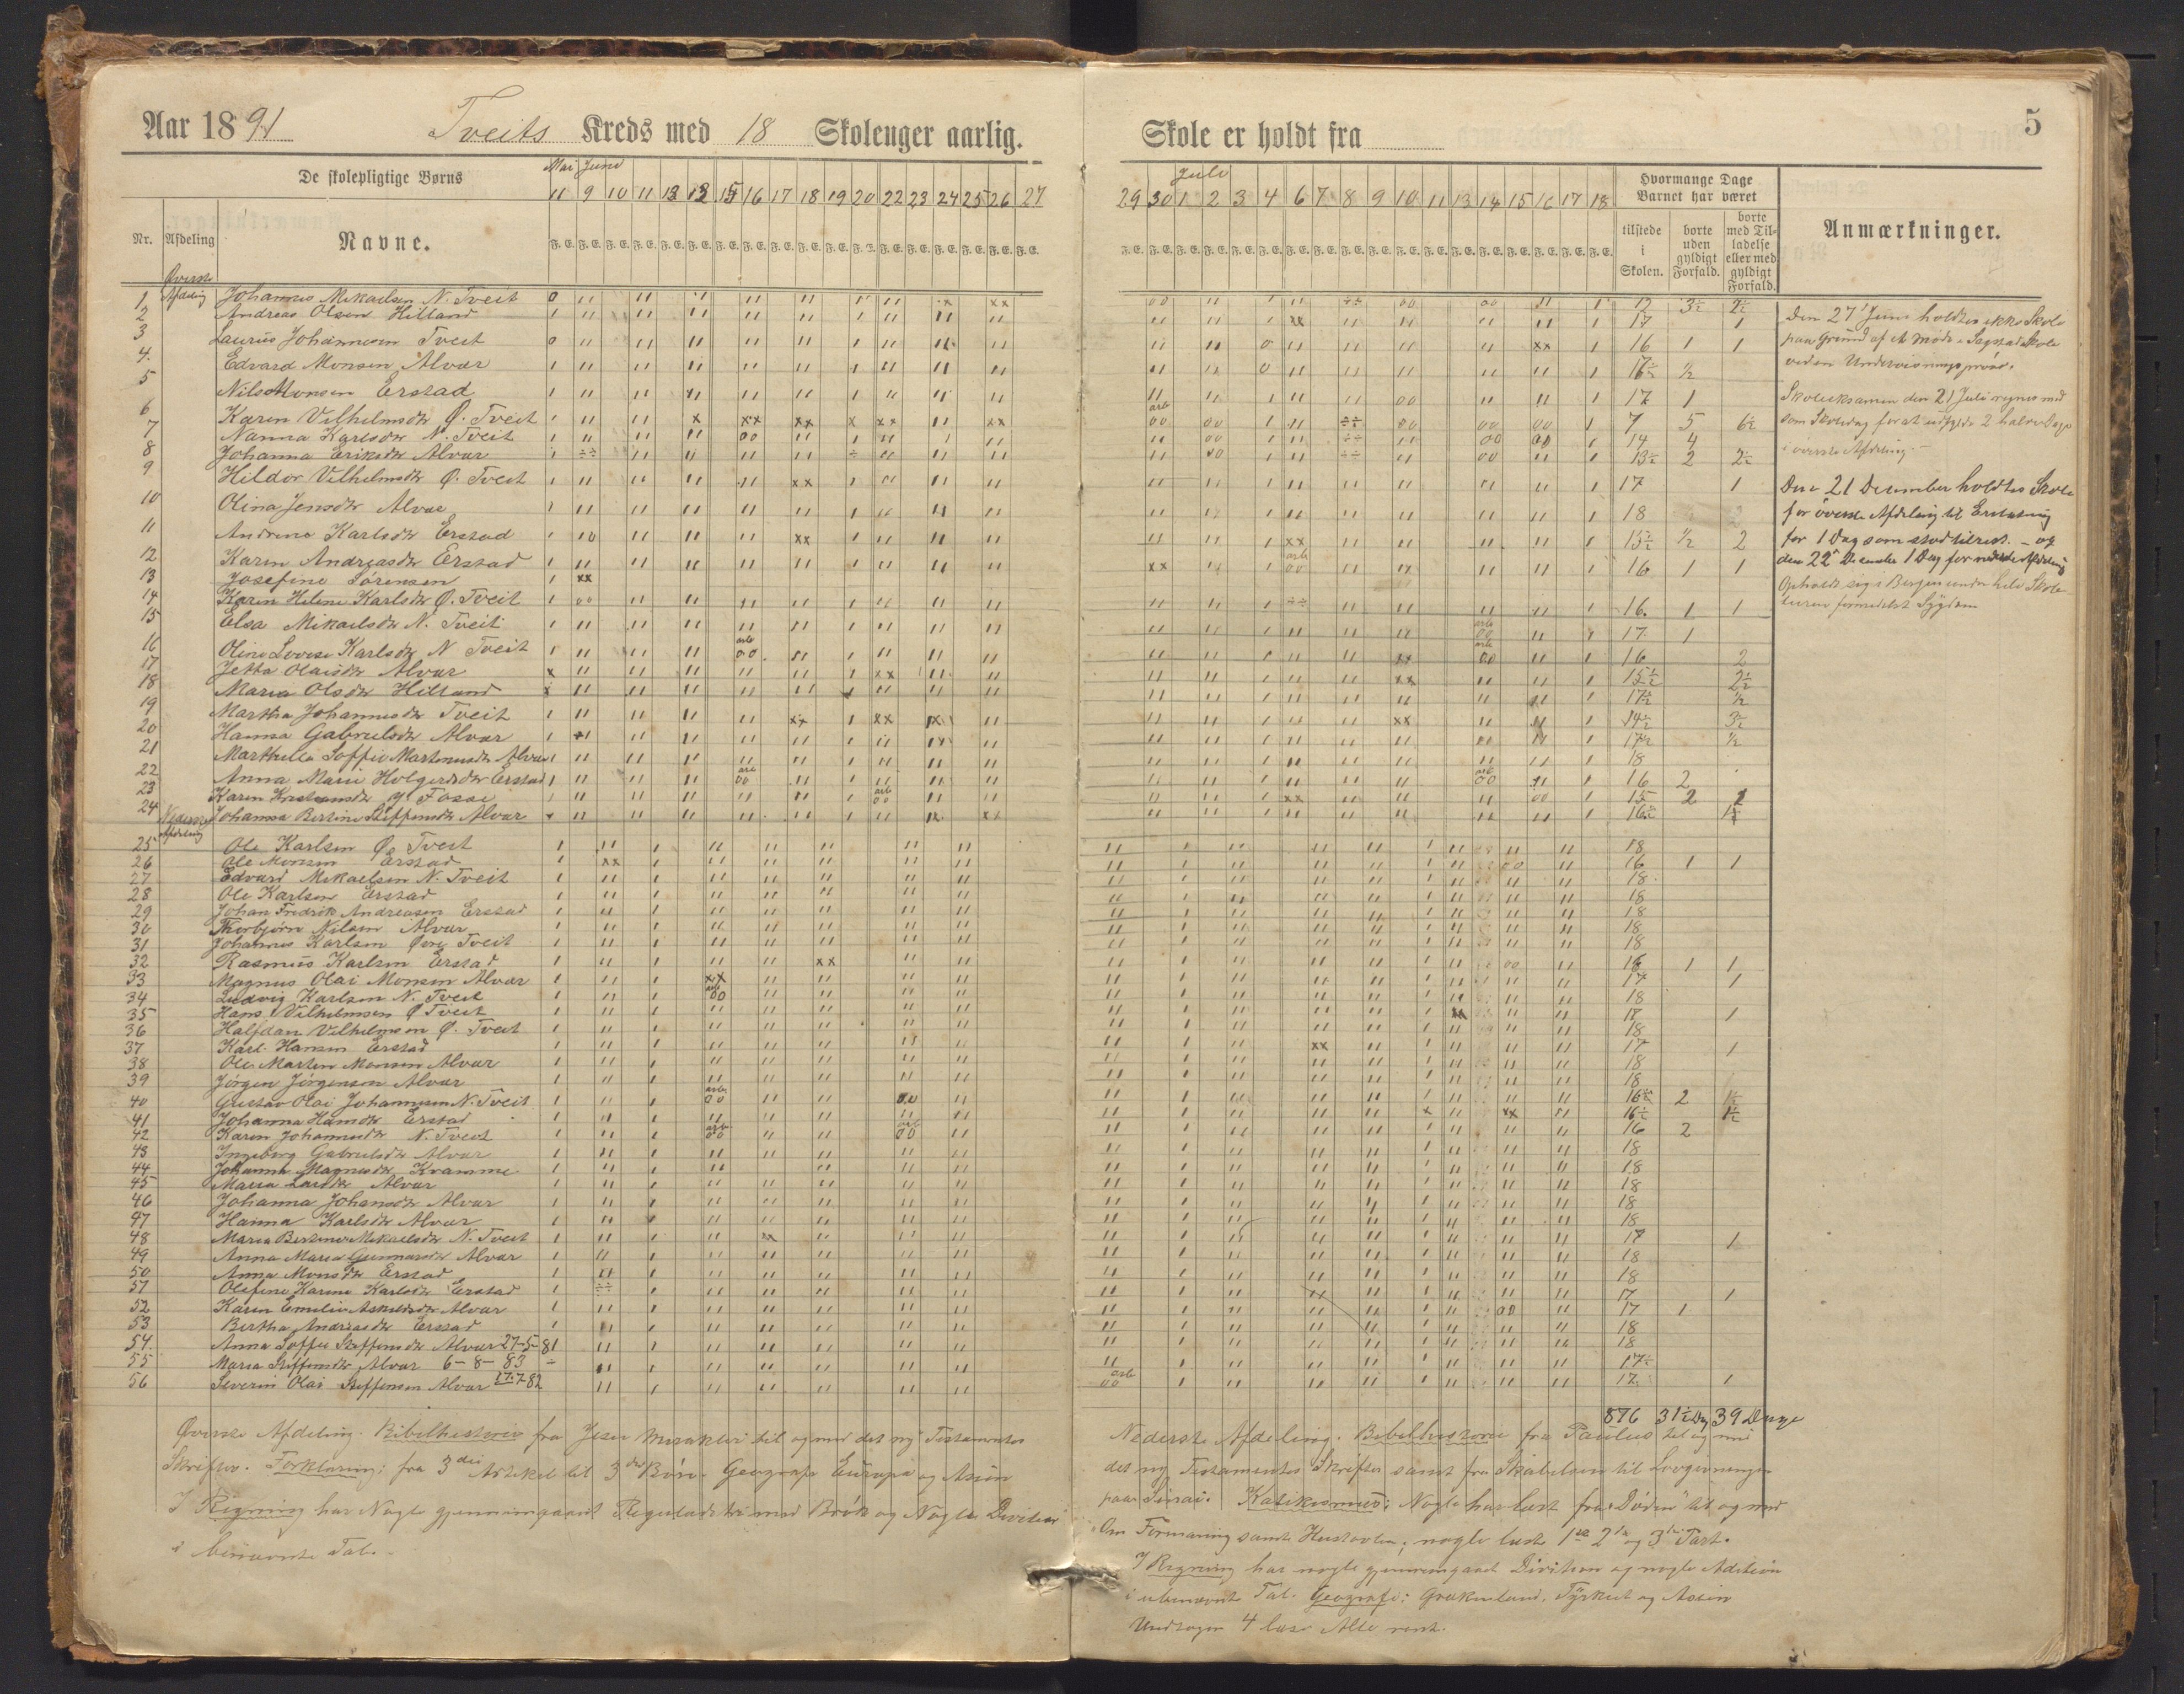 Aar 1891 Tveits Kreds med 18 Skoleuger aarlig.
De skolepligtige Børns
Mai Juni
11 9 10 11 12 13 15 16 17 18 19 20 22 23 24 25 26 27
Nr. Afdeling Navne.
F. E. F. E. F. E. F. E. F. E. F. E. F. E. F. E. F. E. F. E. F. E. F. E. F. E. F. E. F. E. F. E. F. E. F. E.
Øverste Afdeling
1 Johannes Mikaelsen N. Tveit
2 Andreas Olsen Hilland
3 Laurits Johannesen Tveit
4. Edvard Monsen Alvær
5 Nils Monsen Erstad
6 Karen Vilhelmsdtr Ø. Tveit
7 Nanna Karlsdtr N. Tveit
8 Johanna Eriksdtr Alvær
9 Hildor Vilhelmsdtr Ø. Tveit
10 Olina Jensdtr Alvær
11 Andrena Karlsdtr Erstad
12 Karen Andreasdtr Erstad
13 Josefine Sørensen
14 Karen Helene Karlsdtr Ø. Tveit
15 Elsa Mikaelsdtr N. Tveit
16 Oline Lovise Karlsdtr N Tveit
17 Jetta Olaisdtr Alvær
18 Maria Olsdtr Hilland
19 Martha Johannesdtr Tveit
20 Hanna Gabrielsdtr Alvær
21 Marthilla Soffie Martinusdtr Alvær
22 Anna Marie Holgersdtr Erstad
23 Karen Kristensdtr Y. Fosse
24 Johanna Bertine Steffensdtr Alvær
Nederste Afdeling
25 Ole Karlsen Ø. Tveit
26 Ole Monsen Erstad
27 Edvard Mikaelsen N. Tveit
28 Ole Karlsen Erstad
29 Johan Fredrik Andreasen Erstad
30 Thorbjørn Nilsen Alvær
31 Johannes Karlsen Øvre Tveit
32 Rasmus Karlsen Erstad
33 Magnus Olai Monsen Alvær
34 Ludvig Karlsen N. Tveit
35 Hans Vilhelmsen Ø Tveit
36 Halfdan Vilhelmsen Ø. Tveit
37 Karl Hansen Erstad
38 Ole Martin Monsen Alvær
39 Jørgen Jørgensen Alvær
40 Gustav Olai Johannesen N. Tveit
41 Johanna Hansdtr Erstad
42 Karen Johannesdtr N. Tveit
43 Ingeborg Gabrielsdtr Alvær
44 Johanna Magnusdtr Kramme
45 Maria Larsdtr Alvær
46 Johanna Johansdtr Alvær
47 Hanna Karlsdtr Alvær
48 Maria Bertine Mikaelsdtr N. Tveit
49 Anna Maria Gunnarsdtr Alvær
50 Anna Monsdtr Erstad
51 Olefine Karine Karlsdtr Erstad
52 Karen Emelie Askildsdtr Alvær
53 Bertha Andreasdtr Erstad
54. Anna Soffie Steffensdtr Alvær 27-5-81
55 Maria Steffensdtr Alvær 6-8-83
56 Severin Olai Steffensen Alvær 17-7-82
Øverste Afdeling. Bibelhistorie fra Jesu Mirakler til og med det ny Testamentes
Skrifter. Forklaring: fra 3die Artikel til 3die Bøn. Geografi Europa og Asien
I Regning har Nogle gjennemgaaet Reguladetri med Brøk og Nogle Division
i benævnte Tal.
5
Skole er holdt fra
Juli
29 30 1 2 3 4 6 7 8 9 10 11 13 14 15 16 17 18
Hvormange Dage Barnet har været
tilstede i Skolen.
borte uden gyldigt Forfald.
borte med Tilladelse eller med gyldigt Forfald.
Anmærkninger.
12 3½ 2½
17 1
16 1 1
16½ ½
17 1
7 5 6½
14 4
13½ 2 2½
17 1
18
15½ ½ 2
16 1 1
16 1 1
17 1
16 2
15½ 2½
17½ ½
14½ 3½
17½ ½
18
16 2
15 2 1
16½ 1½
18
16 1 1
18
18
18
18
18
16 1 1
17 1
18
17 1
18
17 1
18
18
16½ 2 1½
16½ 1½
16 2
18
18
18
18
18
17 1
18
18
17 1
17 1
18
18
17½
17 1
876 31½ Dg 39 Dage
Den 27' Juni holdtes ikke Skole
paa Grund af et Møde i Sagstad Skole
ved en Undervisningsprøve.
Skoleeksamen den 21 Juli regnes med
som Skoledag for at udfylde 2 halve Dage
i øverste Afdeling.
Den 21 December holdtes Skole
for øverste Afdeling til Erstatning
for 1 Dag som stod tilrest. - og
den 22' December 1 Dag for nederste Afdeling
Opholdt sig i Bergen under hele Skole-
turen formedelst Sygdom
Nederste Afdeling. Bibelhistorie fra Paulus til og med
det ny Testamentes Skrifter samt fra Skabelsen til Lovgivningen
paa Sinai. Katikismus: Nogle har læst fra "Døden" til og med
Om Formaning samt Hustavlen; nogle læste 1ste 2den og 3die Part.
I Regning har nogle gjennemgaaet Division og nogle Addition
i ubenævnte Tal. Geografi: Grækenland, Tyrkiet og Asien
Undtagen 4 læse Alle rent.